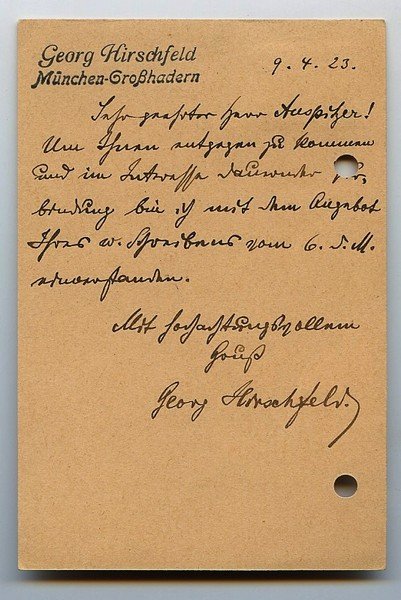 Georg Hirschfeld
München-Großhadern
9. 4. 23.
Sehr geehrter Herr Auspitzer!
Um Ihnen entgegen zu kommen
und im Interesse dauernder Ver
bindung bin ich mit dem Angebot
Ihres w. Schreibens vom 6. d. M.
einverstanden.
Mit hochachtungsvollem
Gruß
Georg Hirschfeld.